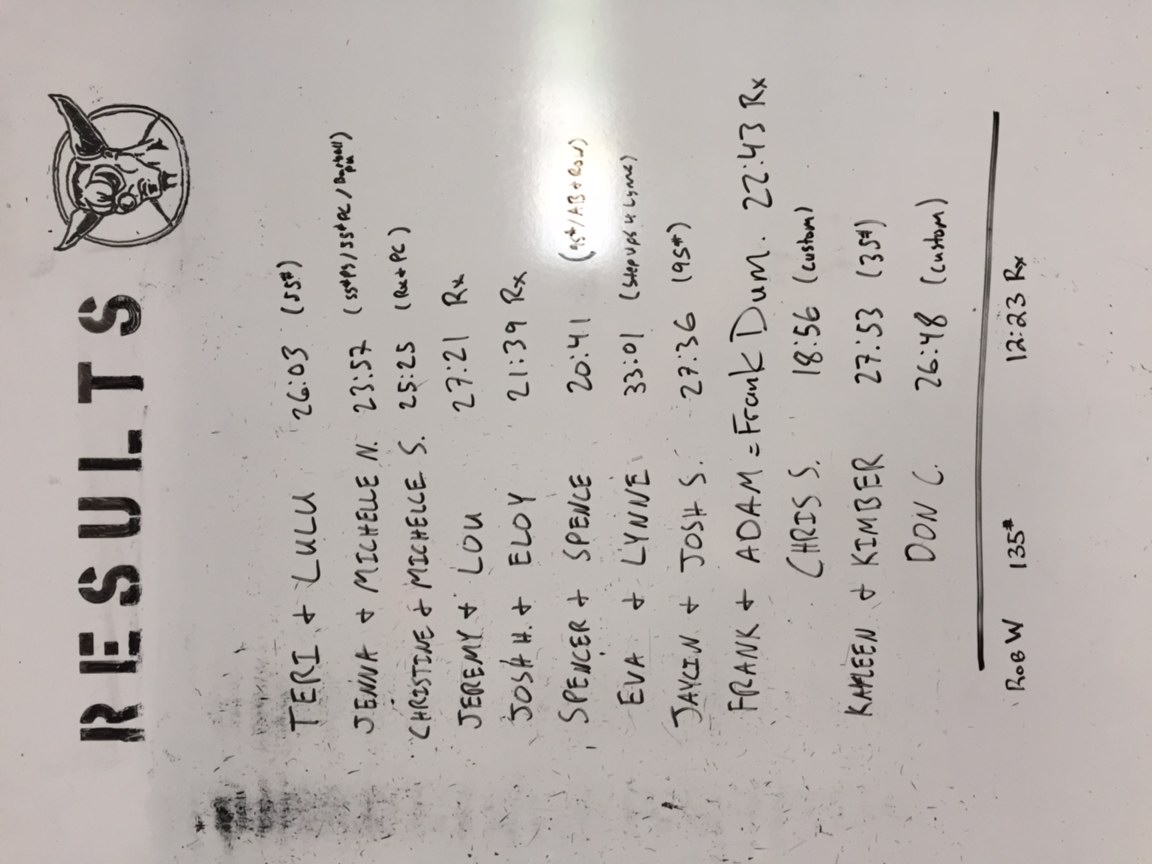 RESULTS
TERI + LULU 26:03 (55#)
JENNA + MICHELLE N. 23:57 (55#PS/55#PC/Partial PU)
CHRISTINE + MICHELLE S. 25:25 (Rx+PC)
JEREMY + LOU 27:21 Rx
JOSH H. + ELOY 21:39 Rx
SPENCER + SPENCE 20:41 (95#/AB+Row)
EVA + LYNNE 33:01 (step ups 4 Lynne)
JAYCIN + JOSH S. 27:36 (95#)
FRANK + ADAM = Frank Dum. 22:43 Rx
CHRIS S. 18:56 (custom)
KAYLEEN + KIMBER 27:53 (35#)
DON C. 26:48 (custom)
ROB W 135# 12:23 Rx